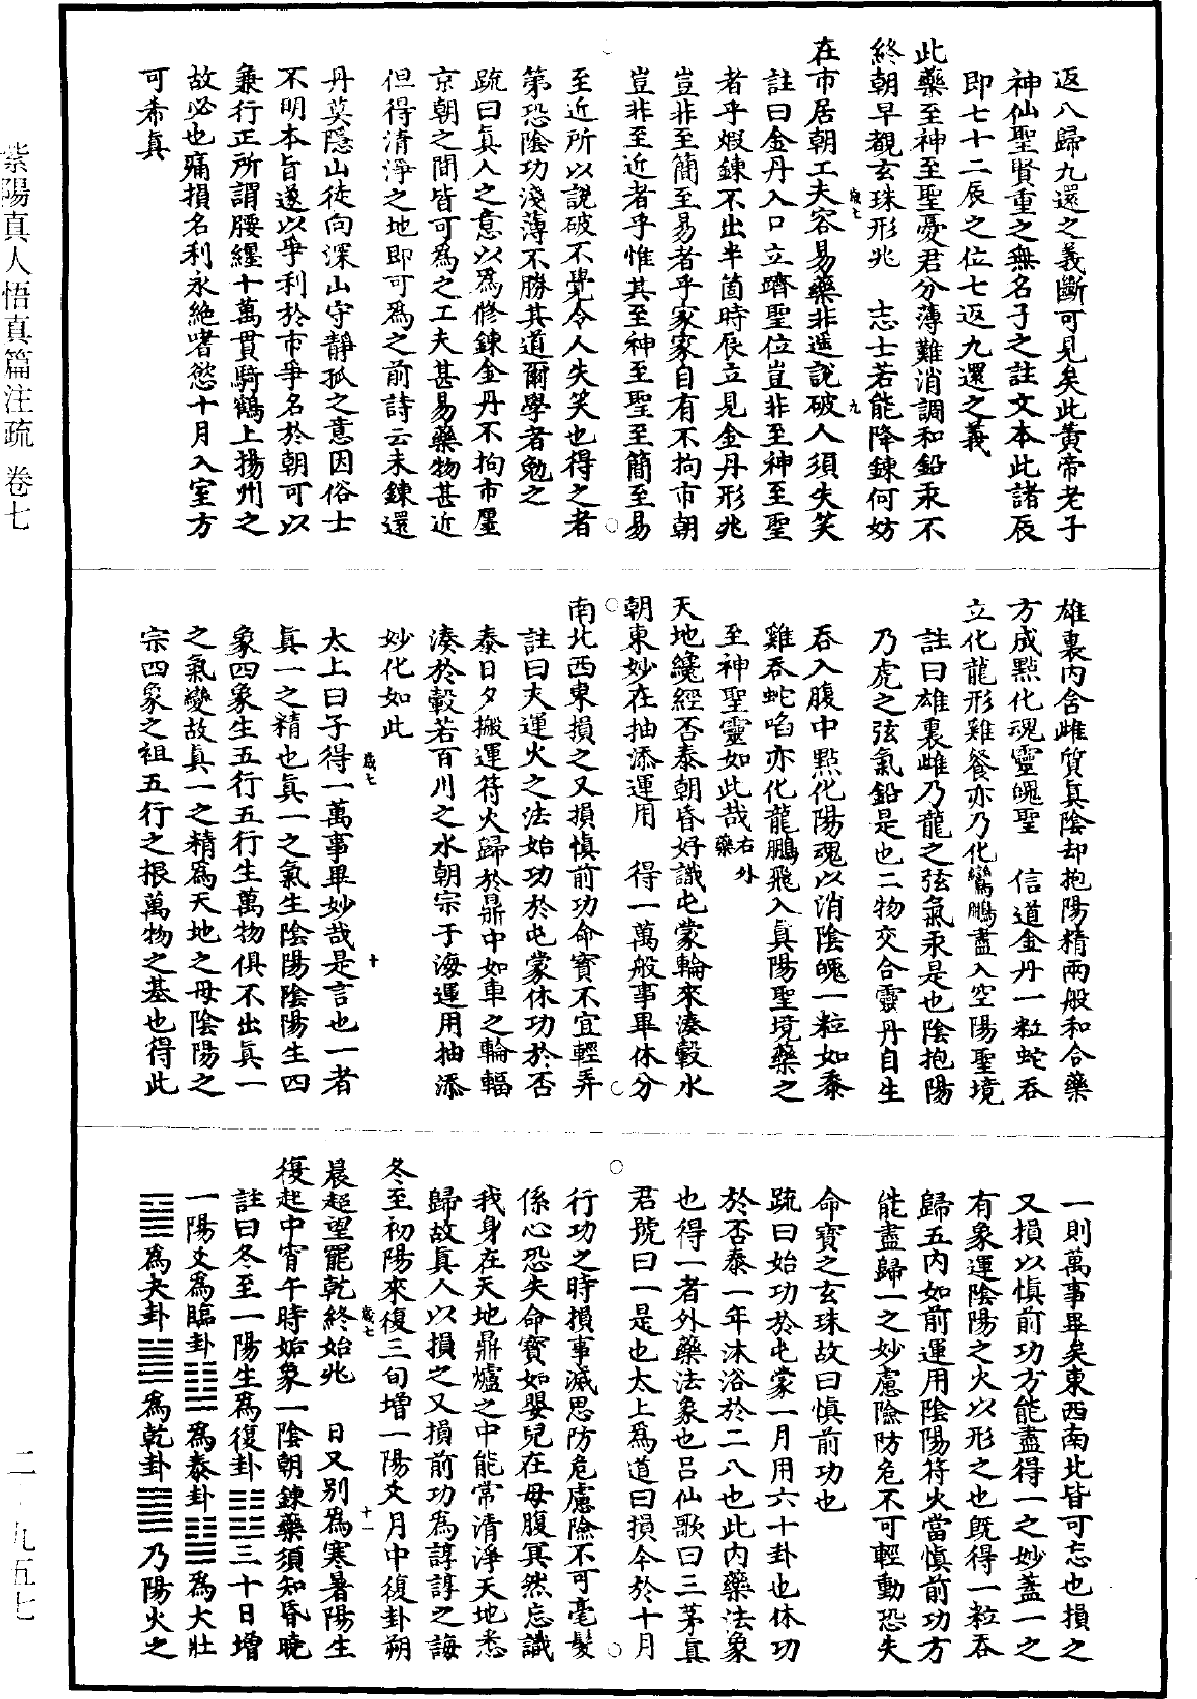 返八歸九還之義斷可見矣此黃帝老子
神仙聖賢重之無名子之註文本此諸辰
即七十二辰之位七返九還之義
此藥至神至聖憂君分薄難消調和鉛汞不
終朝早覩玄珠形兆　志士若能降鍊何妨
在市居朝工夫容易藥非遥說破人須失笑
註曰金丹入口立躋聖位豈非至神至聖
者乎煅鍊不出半箇時辰立見金丹形兆
豈非至簡至易者乎家家自有不拘市朝
豈非至近者乎惟其至神至聖至簡至易
至近所以說破不覺令人失笑也得之者
第恐陰功淺薄不勝其道爾學者勉之
疏曰真人之意以為修鍊金丹不拘市鄽
京朝之間皆可為之工夫甚易藥物甚近
但得清淨之地即可為之前詩云未鍊還
丹莫隱山徒向深山守靜孤之意因俗士
不明本旨遂以爭利於市爭名於朝可以
兼行正所謂腰纏十萬貫騎鶴上揚州之
故必也痛損名利永絶嗜慾十月入室方
可希真
雄裏內含雌質真陰却抱陽精兩般和合藥
方成點化魂靈魄聖　信道金丹一粒蛇吞
立化龍形雞餐亦乃化鸞鵬盡入空陽聖境
註曰雄裏雌乃龍之弦氣汞是也陰抱陽
乃虎之弦氣鉛是也二物交合靈丹自生
吞入腹中點化陽魂以消陰魄一粒如黍
雞吞蛇啗亦化龍鵬飛入真陽聖境藥之
至神聖靈如此哉右外藥
天地纔經否泰朝昏好識屯蒙輪來湊轂水
朝東妙在抽添運用　得一萬般事畢休分
南北西東損之又損慎前功命寶不宜輕弄
註曰夫運火之法始功於屯蒙休功於否
泰日夕搬運符火歸於鼎中如車之輪輻
湊於轂若百川之水朝宗于海運用抽添
妙化如此
太上曰子得一萬事畢妙哉是言也一者
真一之精也真一之氣生陰陽陰陽生四
象四象生五行五行生萬物俱不出真一
之氣變故真一之精為天地之母陰陽之
宗四象之祖五行之根萬物之基也得此
一則萬事畢矣東西南北皆可忘也損之
又損以慎前功方能盡得一之妙蓋一之
有象運陰陽之火以形之也旣得一粒吞
歸五內如前運用陰陽符火當慎前功方
能盡歸一之妙慮險防危不可輕動恐失
命寶之玄珠故曰慎前功也
疏曰始功於屯蒙一月用六十卦也休功
於否泰一年沐浴於二八也此內藥法象
也得一者外藥法象也呂仙歌曰三茅真
君號曰一是也太上為道曰損今於十月
行功之時損事減思防危慮險不可毫髮
係心恐失命寶如嬰兒在母腹冥然忘識
我身在天地鼎爐之中能常清淨天地悉
歸故真人以損之又損前功為諄諄之誨
冬至初陽來復三旬增一陽爻月中復卦朔
晨超望罷乾終始兆　日又別為寒暑陽生
復起中宵午時姤象一陰朝鍊藥須知昏曉
註曰冬至一陽生為復卦䷗三十日增
一陽爻為臨卦䷒為泰卦䷊為大壯
䷡為夬卦䷪為乾卦䷀乃陽火之
歲七　九
歲七　十
歲七　十一
紫陽真人悟真篇注疏　卷七
二—九五七